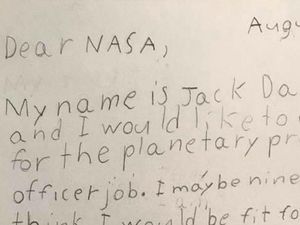 Augu
Dear NASA,
My name is Jack Da
and I would like to
for the planetary pr
officer job. I may be nine
think I would be fit fo